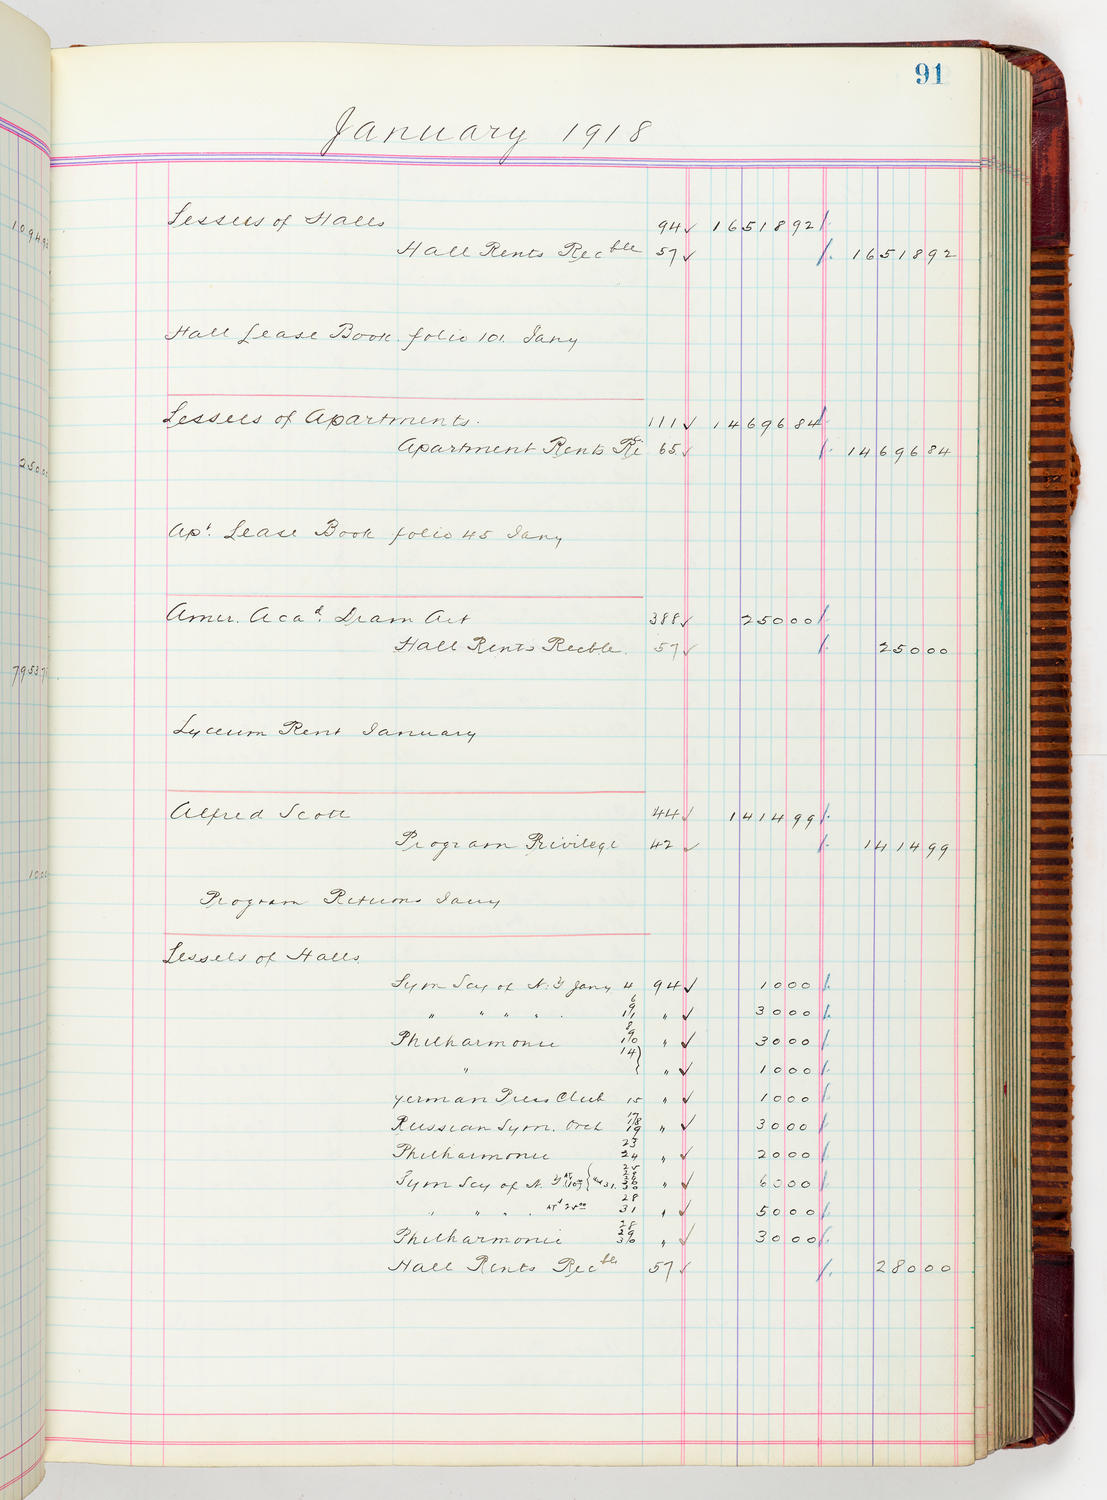 91
January 1918
Lessees of Halls 94 ✓ 1651892
Hall Rents Rec ble 57 ✓ 1651892
Hall Lease Book folio 101 Jany
Lessees of Apartments. 111 ✓ 1469684
Apartment Rents Re 65 ✓ 1469684
Apt. Lease Book folio 45 Jany
Amer. Acad. Dram Art 388 ✓ 25000
Hall Rents Recble. 57 ✓ 25000
Lyceum Rent January
Alfred Scott 44 ✓ 141499
Program Privilege 42 ✓ 141499
Program Returns Jany
Lessees of Halls
Sym Socy of N.Y Jany 4 94 ✓ 1000
" " " " 6 9 11 " ✓ 3000
Philharmonic 8 9 10 " ✓ 3000
" 14 " ✓ 1000
German Press Club 15 " ✓ 1000
Russian Sym. Orch 17 18 19 " ✓ 3000
Philharmonic 23 24 " ✓ 2000
Sym Socy of N. Y " ✓ 6000
" " " " 28 31 " ✓ 5000
Philharmonic 28 29 30 " ✓ 3000
Hall Rents Rec ble 57 ✓ 28000